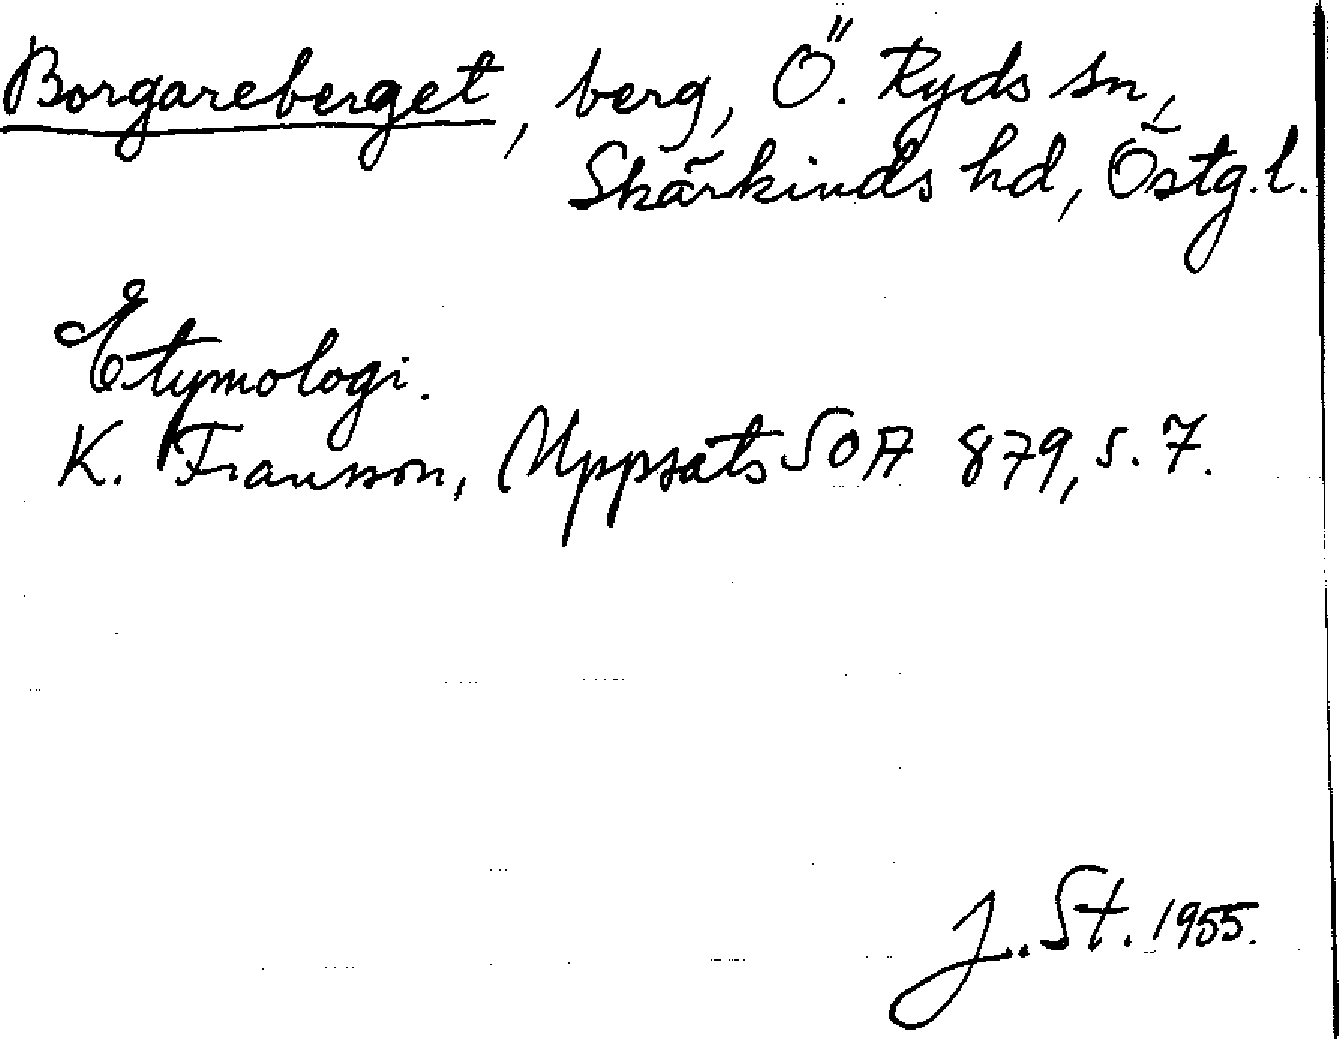 Borgareberget, berg, Ö. Ryds sn,
Skärkinds hd, Östg.l.
Etymologi.
K. Fransson, Uppsats SOA 879, s. 7.
J. St. 1955.